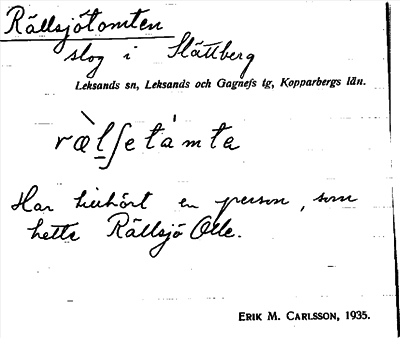 Rällsjötomten
slog i Slättberg
Leksands sn, Leksands och Gagnefs tg, Kopparbergs län.
ræ̀l̠ʃetámta
Har hiehört en person, som
hette Rällsjö Olle.
ERIK M. CARLSSON, 1935.